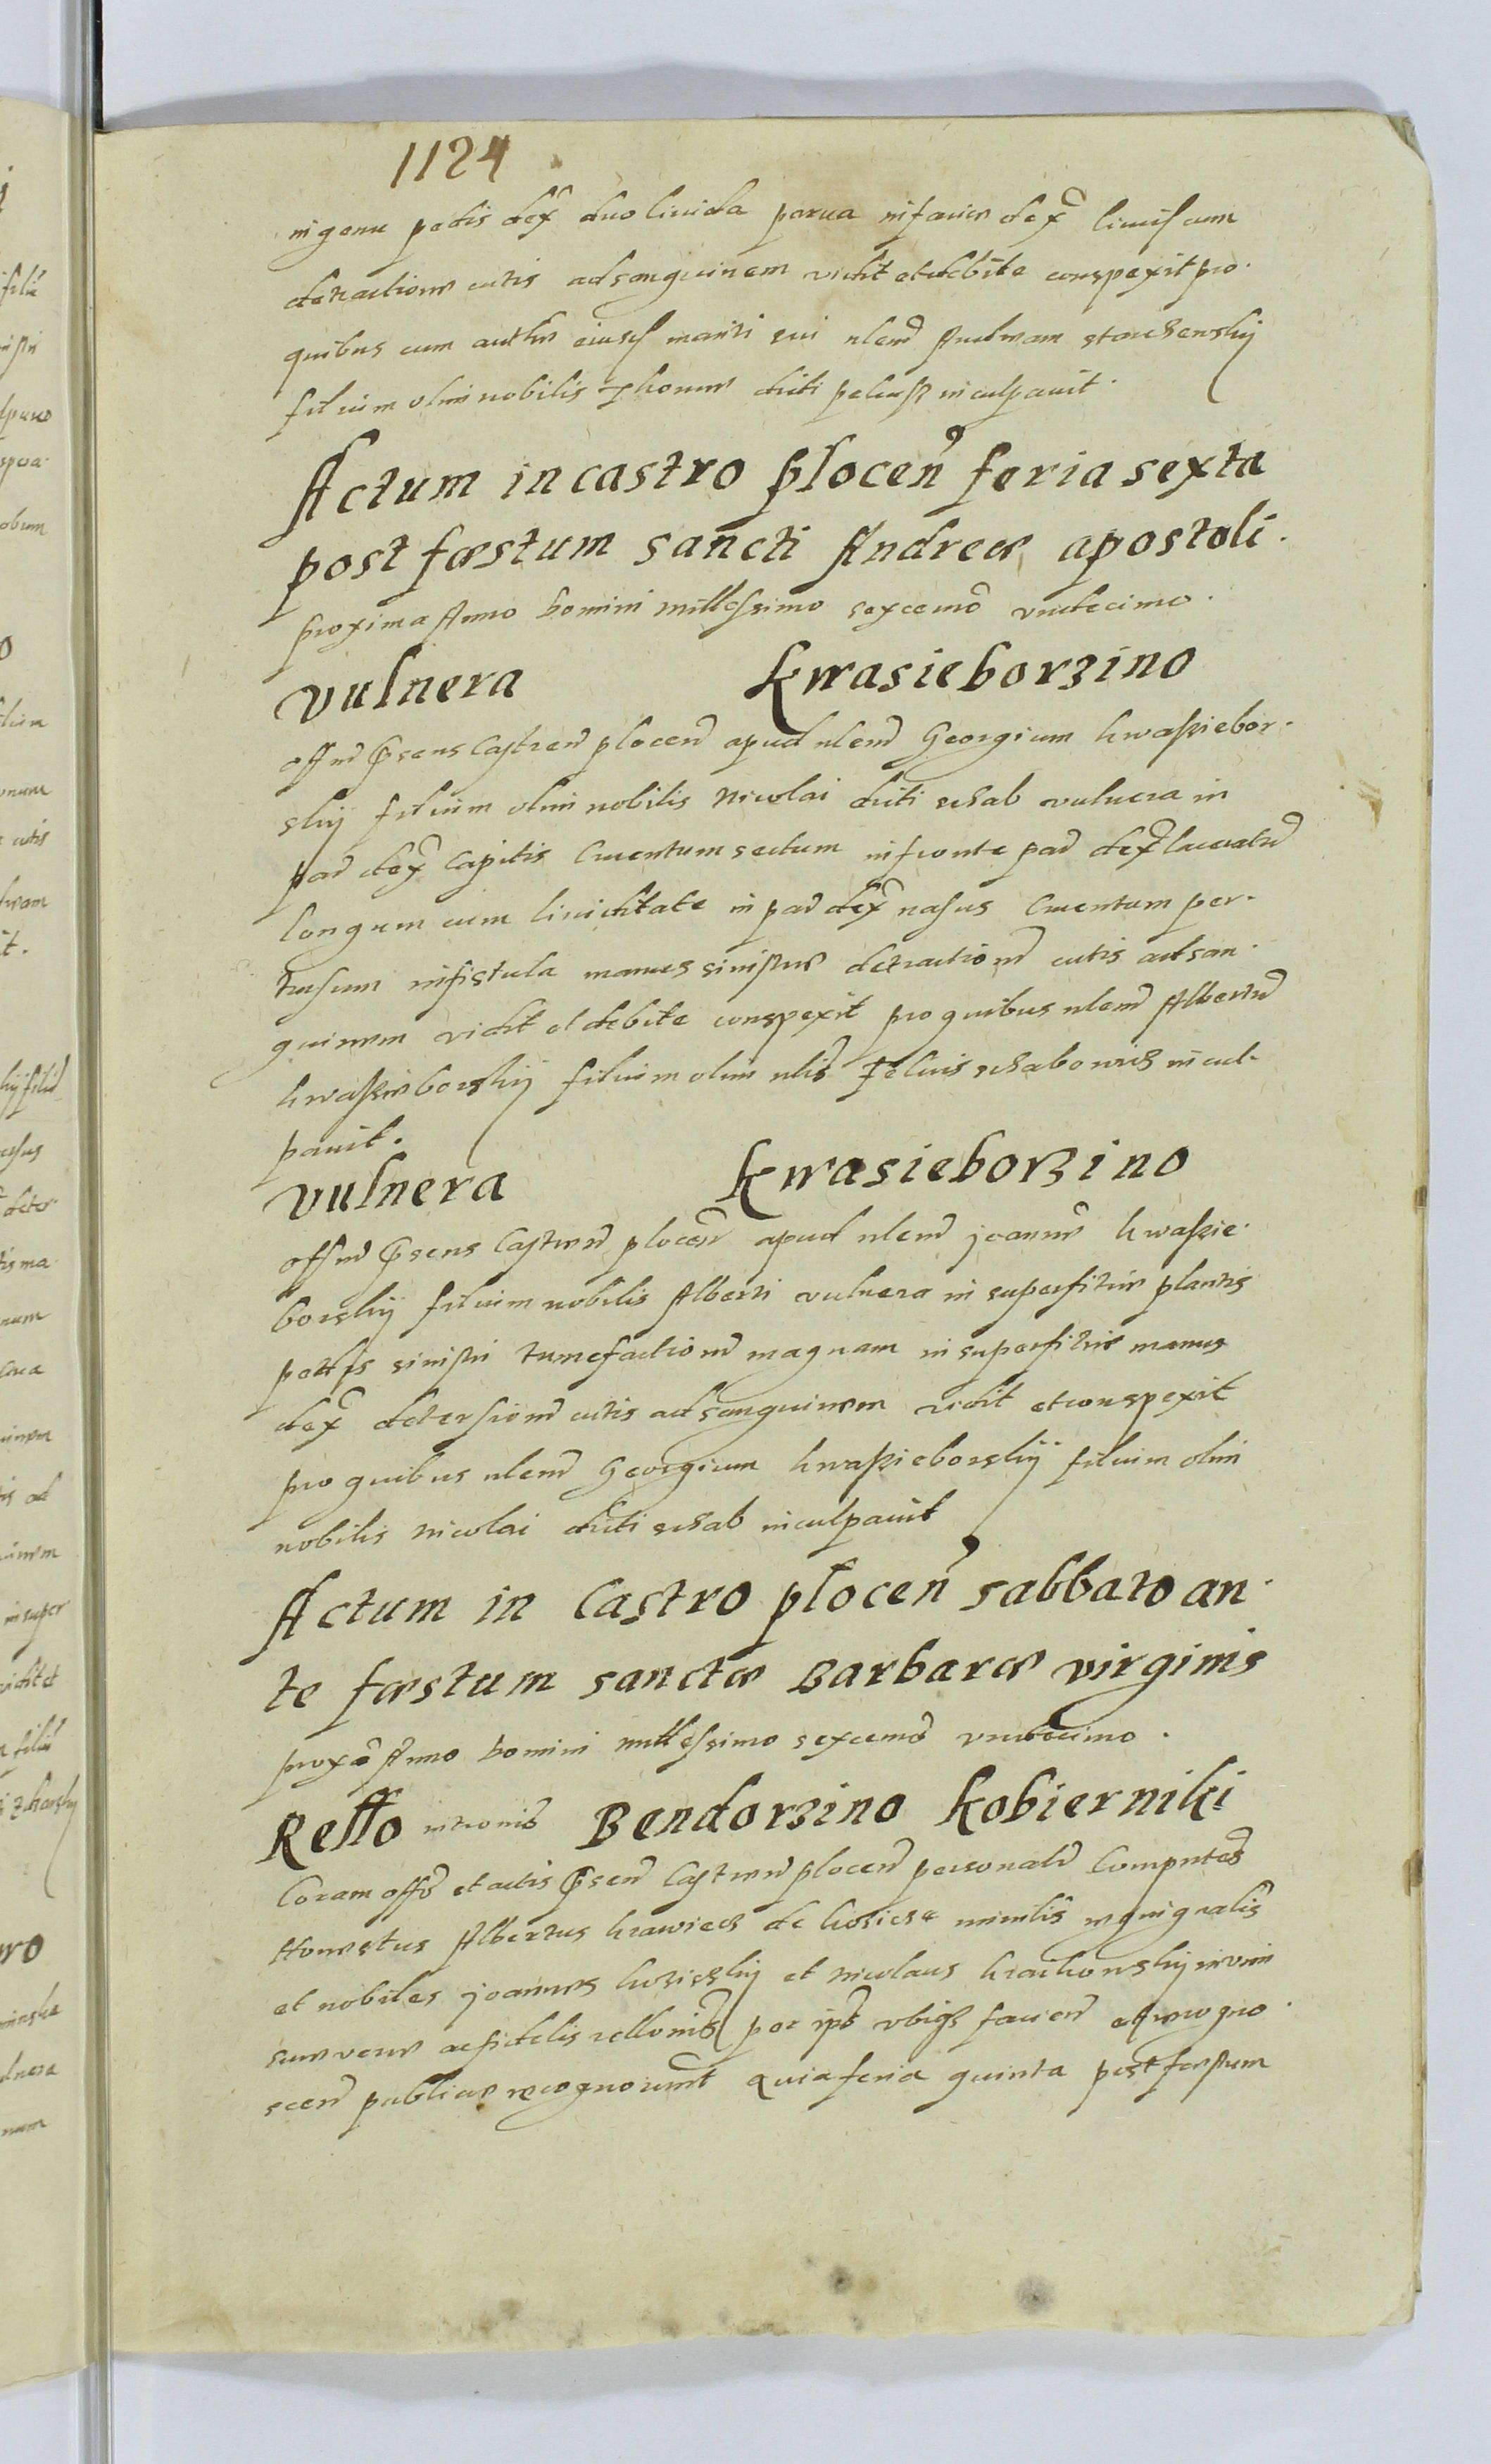 1124
in genu pedis dex̃ duo livida parva in facie dex̃ livisum
detractione cutis ad sanguinem vidit et debite conspexit pro
quibus cum auth̃e eiusd mariti sui nlem̃ Andream
filium olim nobilis Thomæ dicti inculpavit.
Actum in castro plocen̄ feria sexta
post fæstum sancti Andreæ apostoli.
proxima Anno Domini millessimo sexcem̃o undecimo.
vulnera Kwasieborzino
offm̃ p̃sens Castren̄ plocen̄ apud nlem̃ Georgium kwassiebor-
skij filium olim nobilis Nicolai dicti schab vulnera in
par̃ dex̃ capitis Cruentum sectum in fronte par̃ dex̃ laceratũ
longum cum lividitate in par̃ dex̃ nasus Cruentum per-
tusum in fistula manus sinistræ detractionẽ cutis ad san-
guinem vidit et debite conspexit pro quibus nlem̃ Albertũ
kwassieborskij filium olim nlis̃ Felicis schabowicz incul-
pavit.
vulnera Kwasieborzino
offm̃ p̃sens Castren̄ plocen̄ apud nlem̃ joannẽ kwassie-
borskij filium nobilis Alberti vulnera in superfitie plantis
pedis sinistri tumefactionẽ magnam in superfitie manus
dex̃ detersionẽ cutis ad sanguinem vidit et conspexit
pro quibus nlem̃ Georgium kwassieborskij filium olim
nobilis nicolai dicti schab inculpavit
Actum in Castro plocen̄ sabbato an-
te fæstum sanctæ Barbaræ virginis
proxõ Anno Domini millessimo sexcem̃o undecimo.
Rello Bendorzino Kobierniki
Coram offõ et actis p̃sen̄ Castren̄ plocen̄ personalr̃ Comparñtes
Honestus Albertus krawiecz de minr̃ilis regni gñalis
et nobiles joannes et nicolaus
suæ veræ ac fidelis rellonis per ip̃os ubiqз facien̄ et recogno-
scen̄ publice recognoverũt Quia feria quinta post fæstum